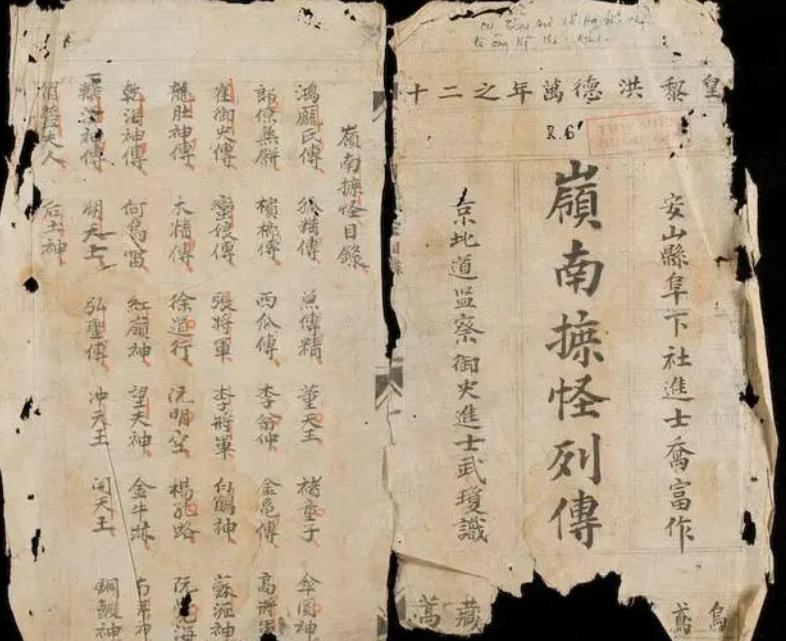 皇黎洪德萬年之二十
R.6
安山縣阜下社進士喬富作
嶺南摭怪列傳
京北道监察御史進士武瓊識
烏鳶
藏蒿
嶺南摭怪目錄
鴻龐氏傳 狐精傳 魚傳精 董天王 褚童子 傘圓神
郎僚 餅 檳榔傳 西瓜傳 李翁仲 金龜傳 高將軍
崔御史傳 蠻娘傳 張將軍 李將軍 白鶴神 蘇瀝神
龍肚神傳 木精傳 徐道行 阮明空 楊孔路 阮覺海
乾海神傳 何烏雷 紅嶺神 望天神 金牛跡
神傳 朔天王 弘聖傳 冲天王 開天王 銅鼓神
夫人 后土神